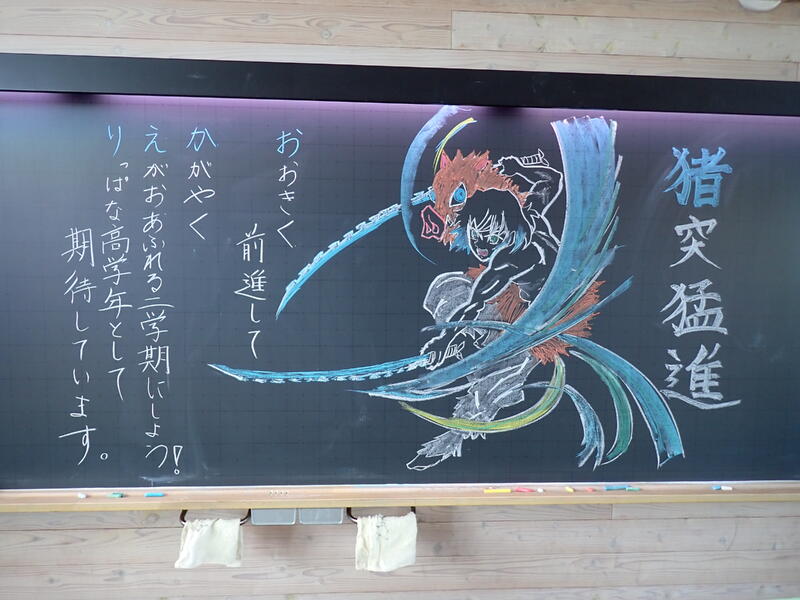 猪突猛進
おおきく
前進して
かがやく
えがおあふれる二学期にしよう!
りっぱな高学年として
期待しています。